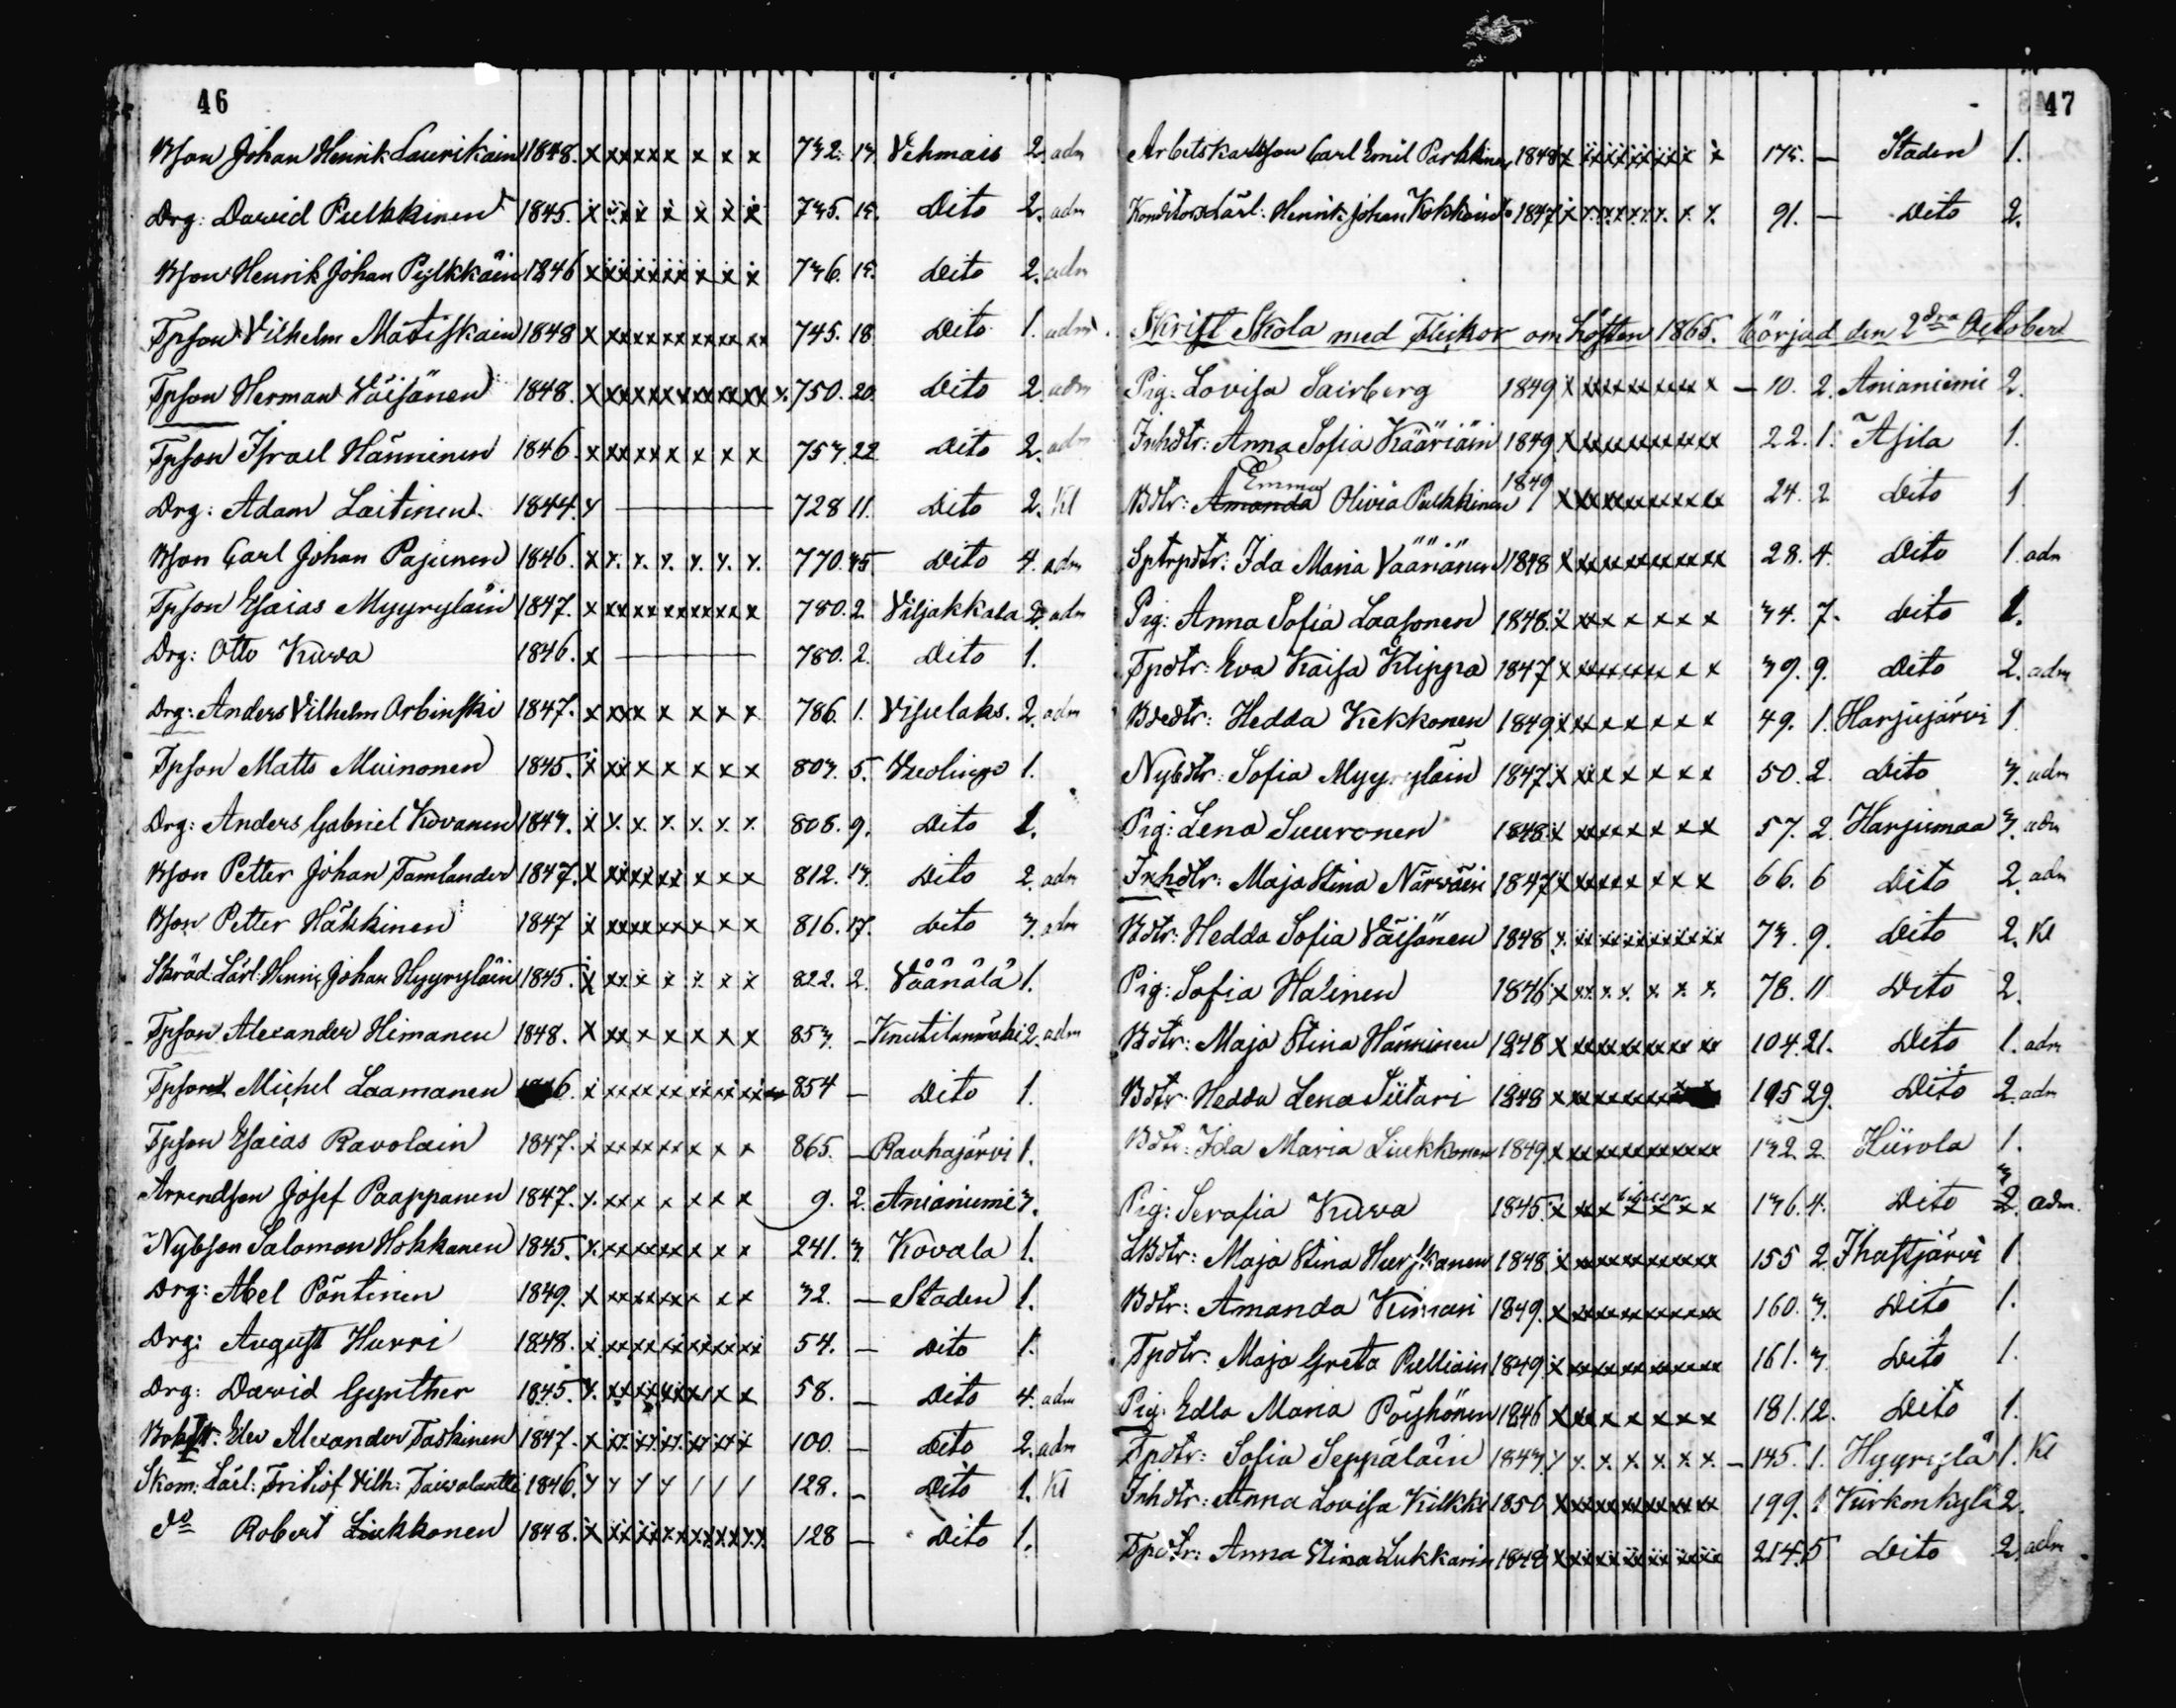 46
Bson Johan Henrik Laurikain 1848. x xx xx x x x x 732. 13. Vehmais 2. adm
Drg: David Pulkkinen 1845. x xx x x x x x 735. 15. Dito 2. adm
Bson Henrik Johan Pylkkäin 1846 x xx xx xx x x x 736. 15. Dito 2. adm
Tpson Vilhelm Matiskain 1848 x xx xx xx xx xx xx 745. 18 Dito 1. adm.
Tpson Herman Väisänen 1848. x xx xx xx xx xx xx x. 750. 20. Dito 2 adm
Tpson Israel Hänninen 1846. x xx xx x x x x 753. 22 Dito 2. adm
Drg: Adam Laitinen 1844. x — 728 11. Dito 2. Kl
Bson Carl Johan Pajunen 1846. x x. x. x. x. x. x. 770. 35 Dito 4. adm
Tpson Esaias Myyryläin 1847. x xx xx xx xx x x 780. 2. Viljakkala 2. adm
Drg: Otto Kuva 1846. x — 780. 2. Dito 1.
Drg: Anders Vilhelm Orbinski 1847. x xx x x x x x 786. 1. Visulaks. 2. adm
Tpson Matts Muinonen 1845. x xx x x x x x 803. 5. 1.
Drg: Anders Gabriel Kovanen 1843. x x. x. x. x. x. x. 808. 9. Dito 1.
Bson Petter Johan Tamlander 1847. x xx xx xx x x x 812. 13. Dito 2. adm
Bson Petter Häkkinen 1847 x xx xx xx x x x 816. 17. Dito 3. adm
Skräd: Lärl: Henric Johan Hyyryläin 1845. x xx x x x x x 822. 2. Väänälä 1.
Tpson Alexander Himanen 1848. x xx x x x x x 853. — 2. adm
Tpson Michel Laamanen 6. x xx xx xx xx xx xx 854 — Dito 1.
Tpson Esaias Ravolain 1847. x xx xx xx x x x 865. — Rauhajärvi 1.
Arrendson Josef Paappanen 1847. x. xx x x x x x 9. 2. Anianiemi 3.
Nybson Salomon Hokkanen 1845. x. xx xx xx x x x 241. 3. Kovala 1.
Drg: Abel Pöntinen 1849. x xx xx xx x x x 32. — Staden 1.
Drg: August Hurri 1848. x. xx xx xx xx xx xx 54. — Dito 1.
Drg: David Gynther 1845. x. xx xx xx xx x x 58. — Dito 4. adm
Elev Alexander Taskinen 1847. x xx xx xx xx xx x 100. — Dito 2. adm
Skom: Lärl: Fritiof Vilh: 1846. x x x x / / / 128. — Dito 1. Kl
do Robert Liukkonen 1848. x xx xx xx xx xx xx 128 — Dito 1.
47
Arbetskarlsson Carl Emil Parkkinen 1848 x xx xx xx xx x x 175. — Staden 1.
Konditors Lärl: Henrik Johan Kokkoin 1847 x x. x. x. x. x. x. 91. — Dito 2.
Skrift Skola med Flickor om hösten 1865. börjad den 2dra October
Pig: Lovisa Sairberg 1849 x xx xx xx xx x x — 10. 2. Anianiemi 2.
Inhdtr: Anna Sofia Kääriäin 1849. x xx xx xx xx xx 22. 1. Asila 1.
Bdtr: Amanda Emma Olivia Pulkkinen 1849 x xx xx xx xx xx 24. 2 Dito 1
Sptrpdtr: Ida Maria Vääriänen 1848 x xx xx xx xx xx 28. 4. Dito 1. adm
Pig: Anna Sofia Laasonen 1848. x xx x x x x x 34. 7. Dito 1.
Tpdtr: Eva Kaisa Klippa 1847 x xx xx xx x x x 39. 9. Dito 2. adm
Bdtr: Hedda Kekkonen 1849. x xx x x x x x 49. 1. Harjujärvi 1
Nybdtr: Sofia Myyryläin 1847. x xx x x x x x 50. 2. Dito 3. adm
Pig: Lena Suuronen 1848. x xx xx x x x x 57. 2. Harjumaa 3. adm
Inhdtr: Maja Stina Närväin 1847 x xx xx x x x x 66. 6 Dito 2. adm
Bdtr: Hedda Sofia Väisänen 1848 x. xx xx xx xx xx xx 73. 9. Dito 2. Kl
Pig: Sofia Halinen 1846 x xx x. x. x. x. x. 78. 11 Dito 2.
Bdtr: Maja Stina Hänninen 1848 x xx xx xx xx xx 104. 21. Dito 1. adm
Bdtr: Hedda Lena Siitari 1848 x xx xx xx xx 105 29. Dito 2. adm
Bdtr: Ida Maria Liukkonen 1849. x xx xx xx xx xx 132. 2. Hiirola 1.
Pig: Serafia Kuva 1845. x xx x x x x x 136. 4. Dito 3 2. adm.
LBdtr: Maja Stina 1848. x xx xx xx xx xx 155 2. Ihastjärvi 1
Bdtr: Amanda 1849. x xx xx xx xx xx 160. 3. Dito 1.
Tpdtr: Maja Greta Pulliain 1849. x xx xx xx xx xx 161. 3. Dito 1.
Pig: Edla Maria Pöyhönen 1846 x xx x x x x x 181. 12. Dito 1.
Tpdtr: Sofia Seppäläin 1843. x x. x. x. x. x. x. — 145. 1. Hyyrylä 1. Kl
Inhdtr: Anna Lovisa Kilkki 1850. x xx xx xx xx xx 199. 1. Kirkonkylä 2.
Tpdtr: Anna Stina Lukkarin 1848 x xx xx xx xx xx 214. 5 Dito 2. adm